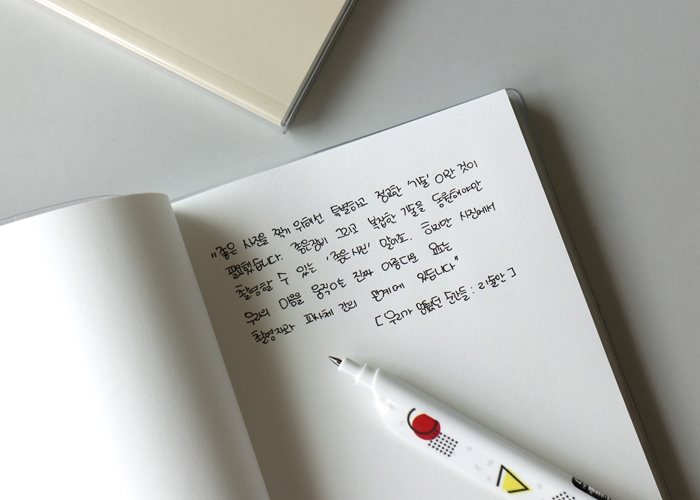 "좋은 사진을 찍기 위해선 특별하고 정교한 '기술' 이란 것이
필요했습니다. 좋은장비 그리고 복잡한 기술을 동원해야만
촬영할 수 있는 '좋은사진' 말이죠. 하지만 사진에서
우리의 마음을 움직이는 진짜 아름다운 요소는
촬영자와 피사체 간의 관계에 있습니다"
[우리가 사랑했던 순간들 :